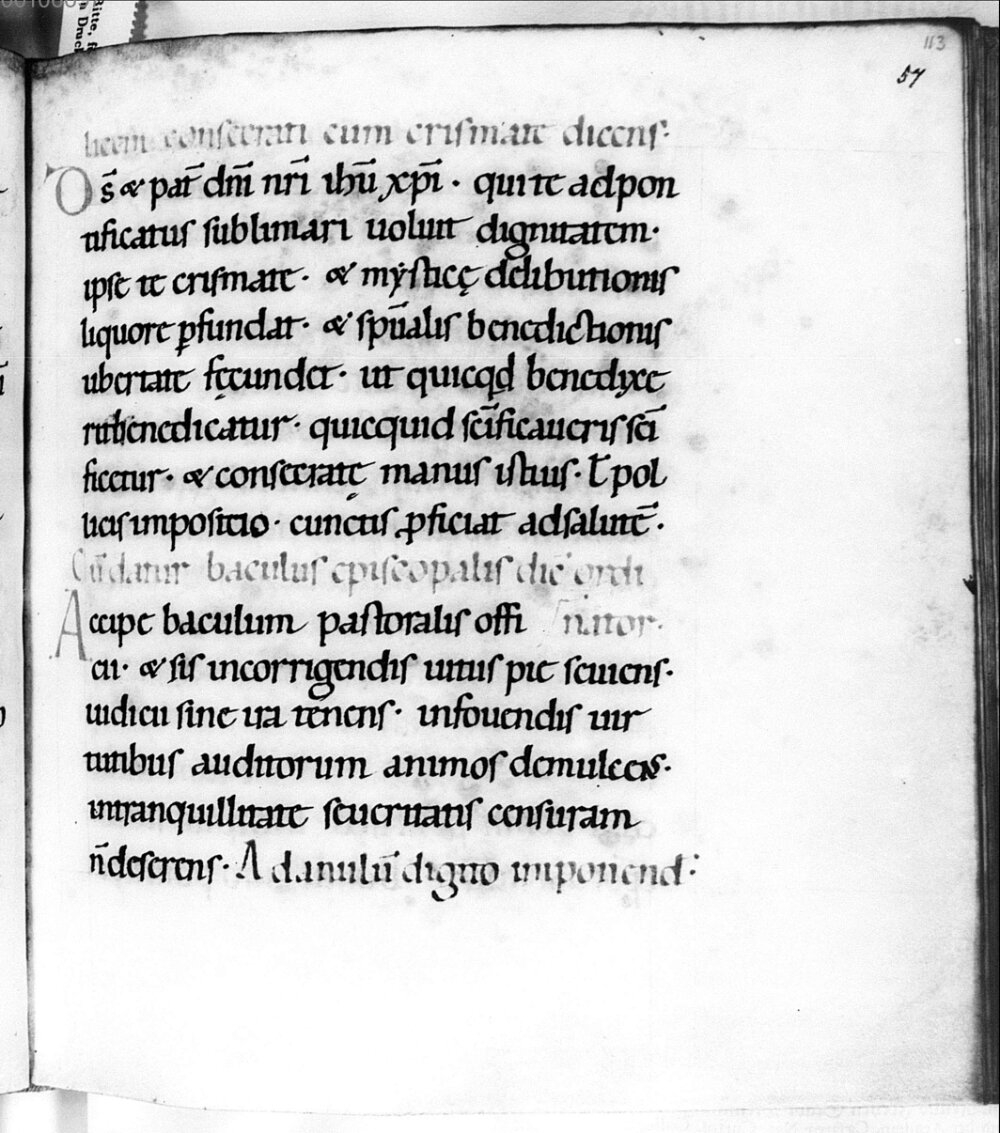 113
57
licem consecrari cum crismate dicens.
Ds̄ & pat̄ dn̄i nr̄i ihū xp̄i . qui te ad pon
tificatus sublimari uoluit dignitatem.
ipse te crismate . & mẏsticę delibutionis
liquore ꝑfundat . & sp̄ualis benedictionis
ubertate fęcundet . ut quicqd benedixe
ris benedicatur . quicquid sc̄ificaueris sc̄i
ficetur . & consecratę manus istius . ł pol
licis impositio . cunctis ꝓficiat ad salutē .
Cū datur baculus episcopalis dic̄ ordi
Accipe baculum pastoralis offi nator.
cii . & sis in corrigendis uitiis pie seuiens.
iudiciū sine ira tenens . in fouendis uir
tutibus auditorum animos demulcens.
in tranquillitate seueritatis censuram
n̄ deserens . Ad anulū digito imponend